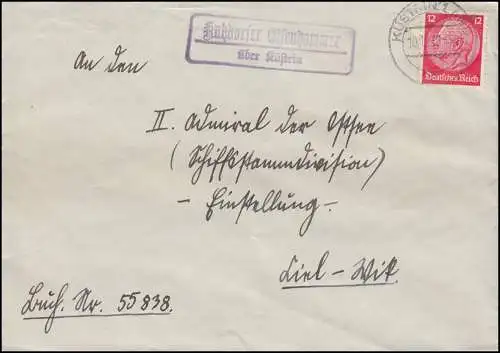 über Küstrin
KÜSTRIN 1
12 12
Deutsches Reich
An den
II. Admiral der Ostsee
(Schiffsstammdivision)
- Einstellung -
Kiel - Wik.
Buch. Nr. 55838.